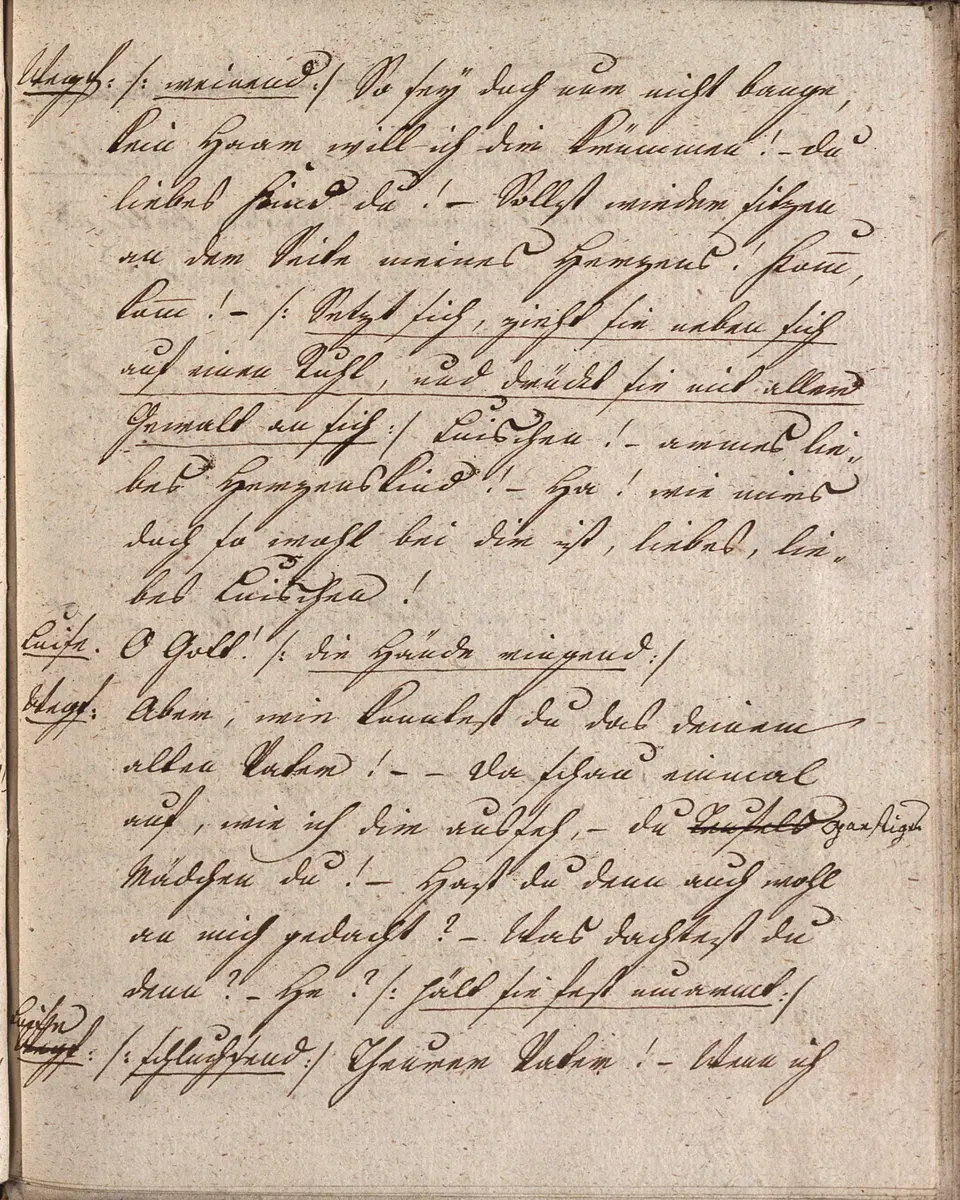 Stepf: /: weinend :/ So sey doch nur nicht bange,
kein Haar will ich dir krümmen! – du
liebes Kind du! – Sollst wieder sitzen
an der Seite meines Herzens! Kom̄,
kom̄! – /: Setzt sich, zieht sie neben sich
auf einen Stuhl, und drückt sie mit aller
Gewalt an sich :/ Luischen! – armes lie„
bes Herzenskind! – Ha! wie mirs
doch so wohl bei dir ist, liebes, lie„
bes Luischen!
Luise. O Gott! /: die Hände ringend :/
Stepf: Aber, wie konntest du das deinem
alten Vater! – – Da schau einmal
auf, wie ich dir ausseh, – du Teufels garstiges
Mädchen du! – Hast du denn auch wohl
an mich gedacht? – Was dachtest du
denn? – He? /: hält sie fest umarmt :/
Luise
Stepf: /: schluchsend :/ Theurer Vater! – Wenn ich